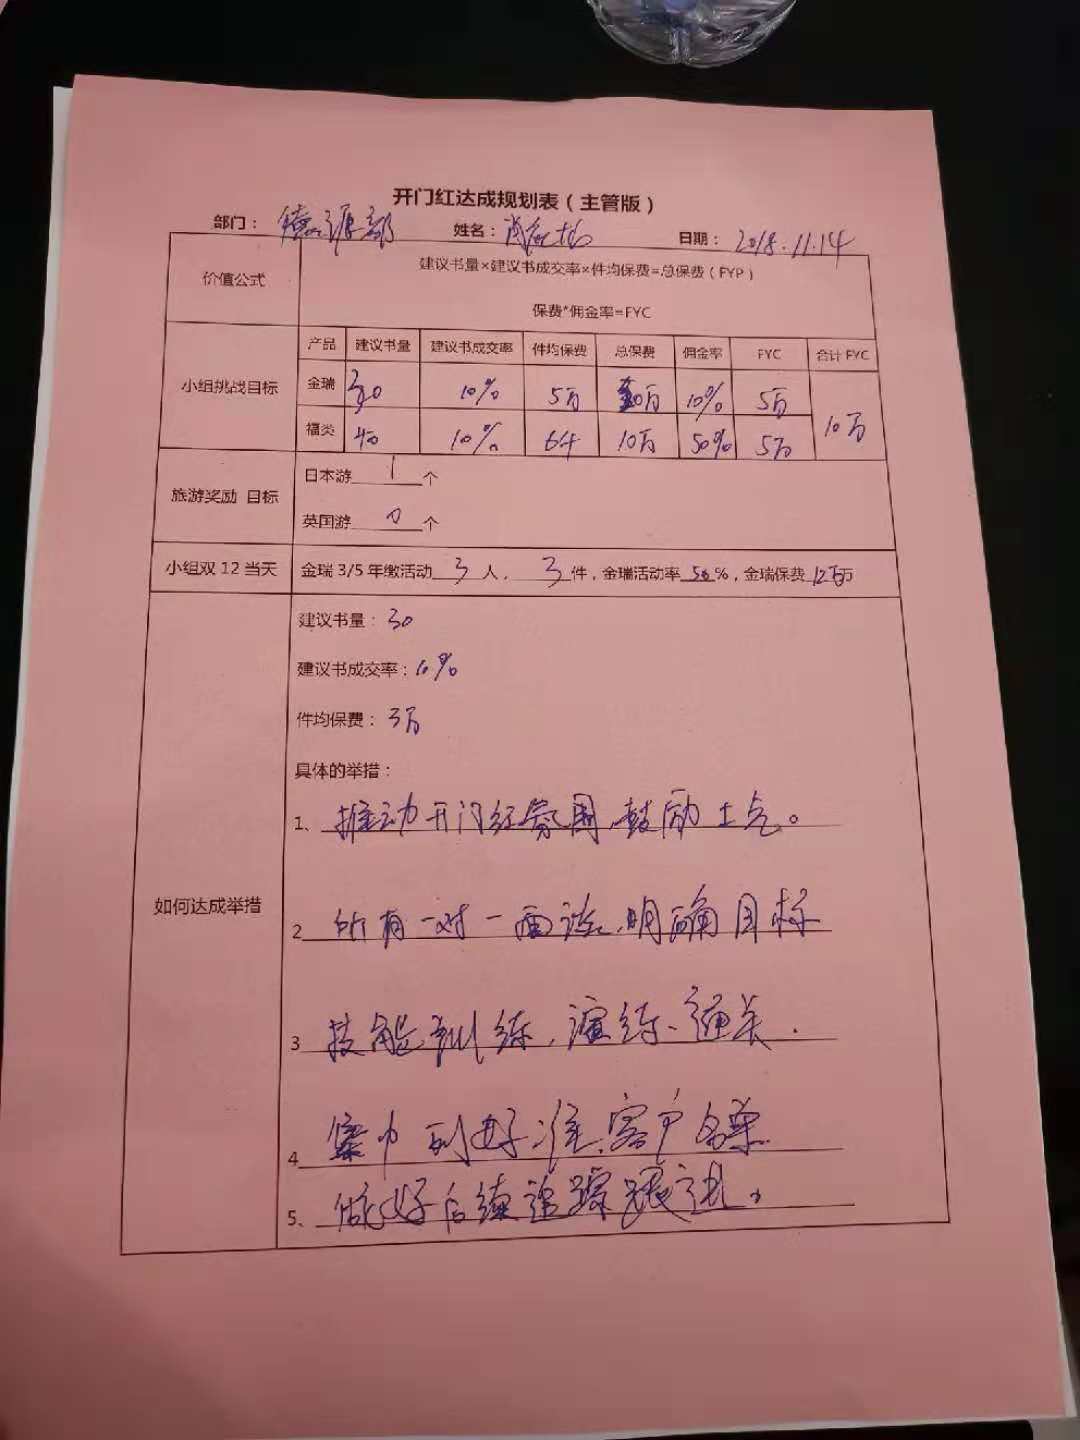 开门红达成规划表（主管版）
部门： 源部 姓名： 日期： 2018.11.14
价值公式 建议书量×建议书成交率×件均保费=总保费（FYP）
保费*佣金率=FYC
小组挑战目标 产品 建议书量 建议书成交率 件均保费 总保费 佣金率 FYC 合计 FYC
金瑞 30 10% 5万 10% 5万 10万
福类 40 10% 10万 50% 5万
旅游奖励 目标 日本游 1 个
英国游 0 个
小组双 12 当天 金瑞 3/5 年缴活动 3 人， 3 件，金瑞活动率 50 %，金瑞保费 12万 万
如何达成举措 建议书量： 30
建议书成交率：10%
件均保费： 3万
具体的举措：
1、 推动开门红氛围，鼓励士气。
2 所有一对一面谈，明确目标
3 技能训练，演练、通关.
4 集中列好准客户名单
5、 做好后续追踪跟进。